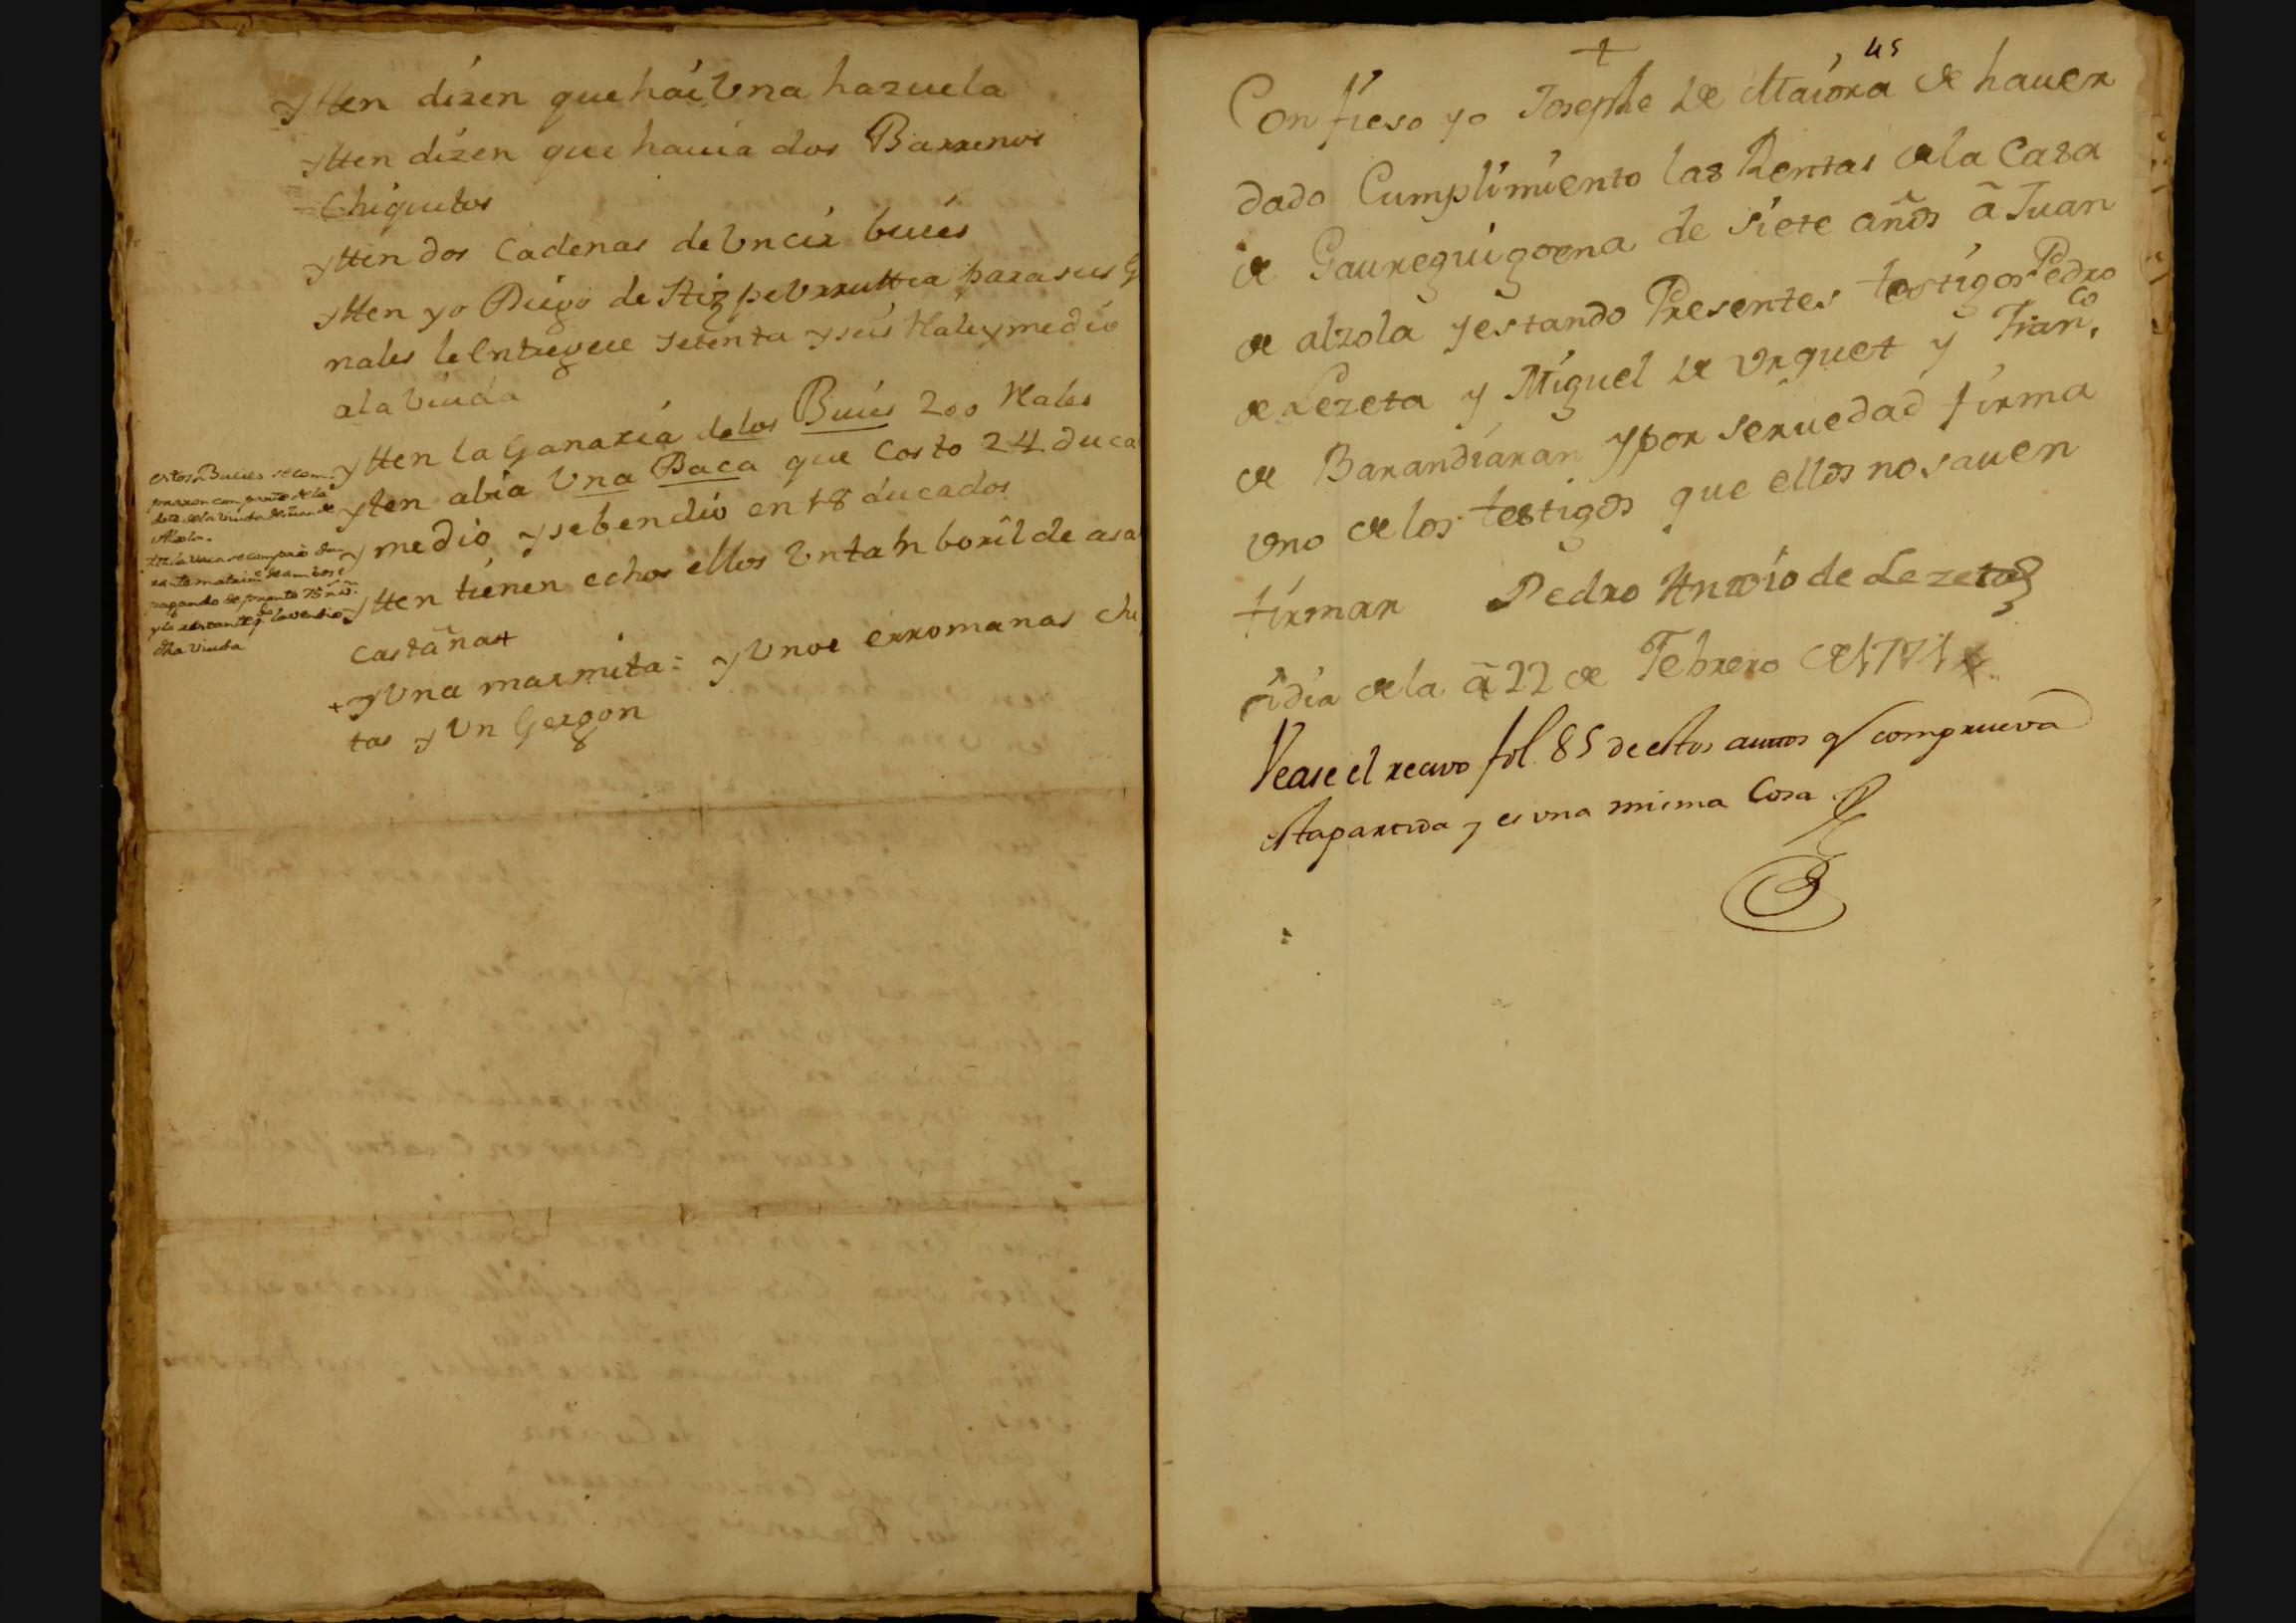 Ytten dizen que hai Vna hazuela
Ytten dizen que hauia dos Barrenos
Chiquitos
Ytten dos Cadenas de Vncir buies
Ytten yo Diego de Aizpe Vrruttia para sus G
nales le Entregue setenta y seis Rales y medio
a la Viuda
Ytten la Ganaria de los Buies 200 Rales
Yten abia Vna Baca que Costo 24 duca
y medio y se bendio en 18 ducados
Ytten tienen echos ellos Vn tanboril de asa
Castañas +
+ y Vna marmita = y Vnos erromanas chi
tas y Vn Gergon
estos Bueies se com-
praron con parte de la
dote de la viuda de Juan de
Alzola.
Ytt. la vaca se compro du-
rante matrim.º de ambos
pagando de pronto 75 r.s v.n
y lo restante q.do la vendio
dha viuda
45
+
Confieso yo Josephe de Maiora de hauer
dado Cumplimiento las Rentas de la Casa
de Gaureguigoena de siete años a Juan
de alzola y estando Presentes testigos Pedro
de Lezeta y Miguel de Vrquet y Fran.co
de Barandiaran y por seruedad firma
vno de los testigos que ellos no sauen
firmar Pedro Antoio de Lezeta
a dia de la a 22 de Febrero de 1741
Vease el recivo fol. 85 de estos autos q comprueva
esta partida y es vna misma Cosa